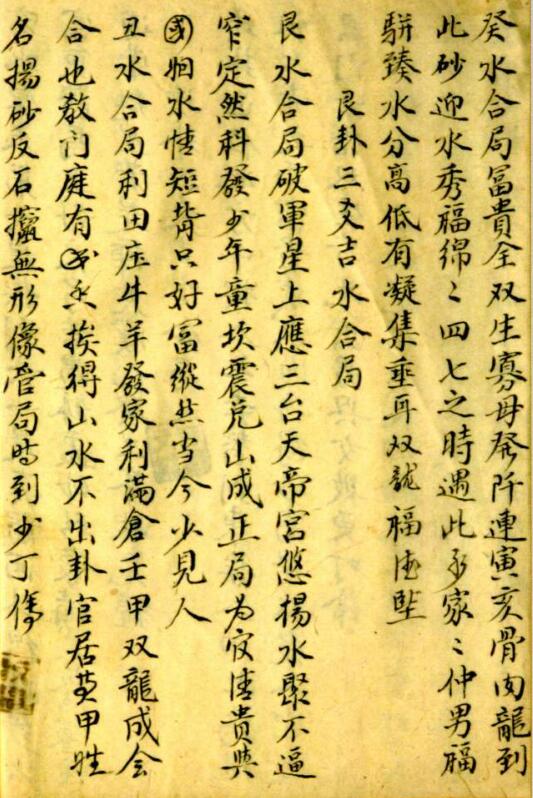 癸水合局冨貴全双生寡母発阡連寅亥骨肉龍到
此砂迎水秀福綿〻四七之時遇此家〻仲男福
駢臻水分高低有凝集垂耳双龍福
艮卦三爻吉水合局
艮水合局破軍星上應三台天帝宮悠揚水聚不逼
窄定然科發少年童坎震兑山成正局为官貴
國水情短只好冨縱然当今少見人
丑水合局利田庄牛羊發家利滿倉壬甲双龍成会
合也教门庭有挨得山水不出卦官居甲姓
名揚砂反石攛無形像管局時到少丁傷